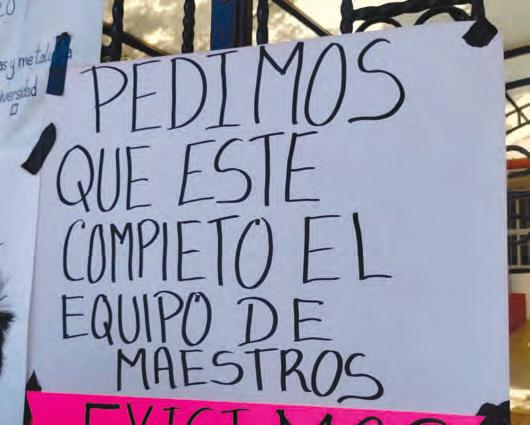 as y metal
versidad
PEDIMOS
QUE ESTE
COMPLETO EL
EQUIPO DE
MAESTROS
EXIGIMOS